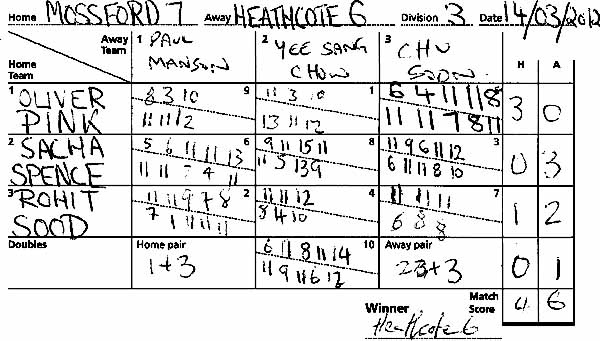 Home MOSSFORD 7 Away HEATHCOTE 6 Division 3 Date 14/03/2012
Away Team 1 PAUL MANSON 2 YEE SANG CHOW 3 CHU SOON H A
Home Team
1 OLIVER PINK 3 0
9 8 3 10
11 11 12
1 11 3 10
13 11 12
5 6 4 11 11 8
11 11 7 8 11
2 SACHA SPENCE 0 3
6 5 6 11 11 13
11 11 7 4 11
8 9 11 15 11
11 5 13 9
3 11 9 6 11 12
6 11 11 8 10
3 ROHIT SOOD 1 2
2 11 11 9 7 8
7 1 11 11 11
4 11 11 12
8 4 10
7 11 11 11
6 8 8
Doubles Home pair 1+3 10 Away pair 2+3 0 1
6 11 8 11 14
11 9 11 6 12
Match Score 4 6
Winner Heathcote 6